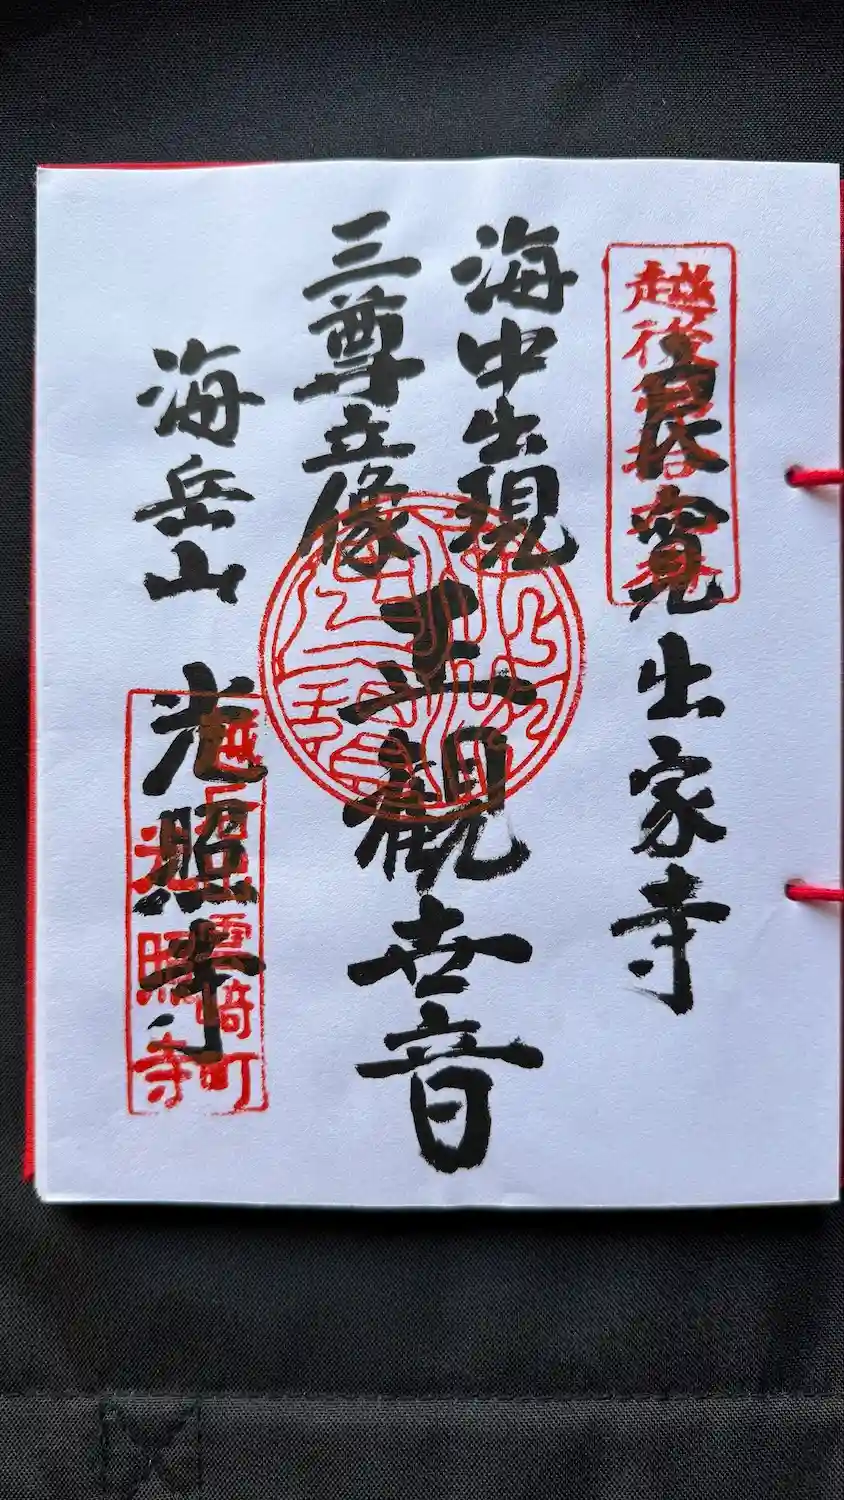 良寛出家寺
海中出現
三尊立像
正觀世音
海岳山 光照寺
越後
雲崎町
光照寺